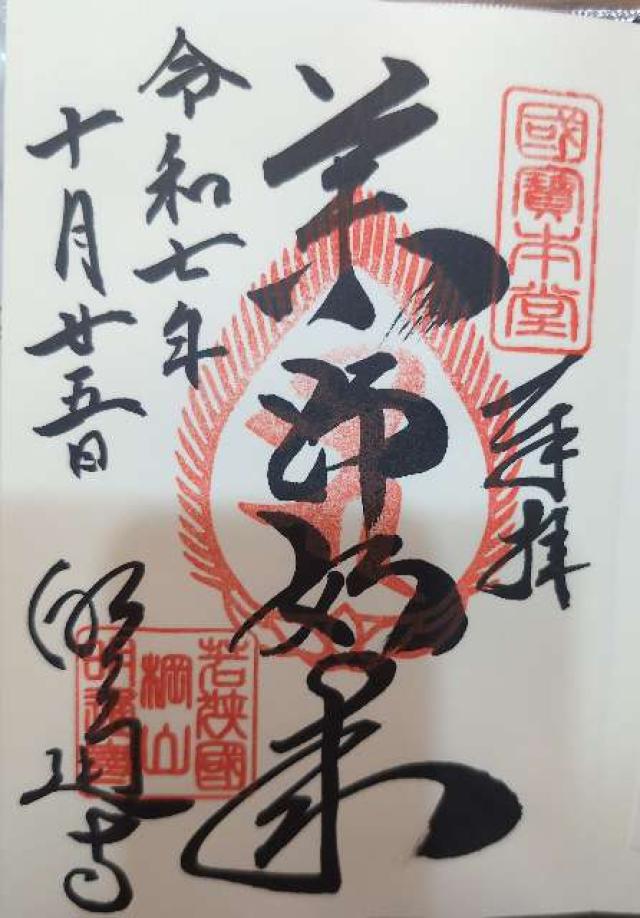 國寶本堂
奉拝
薬師如来
令和七年
十月廿五日
明通寺
若狭國
棡山